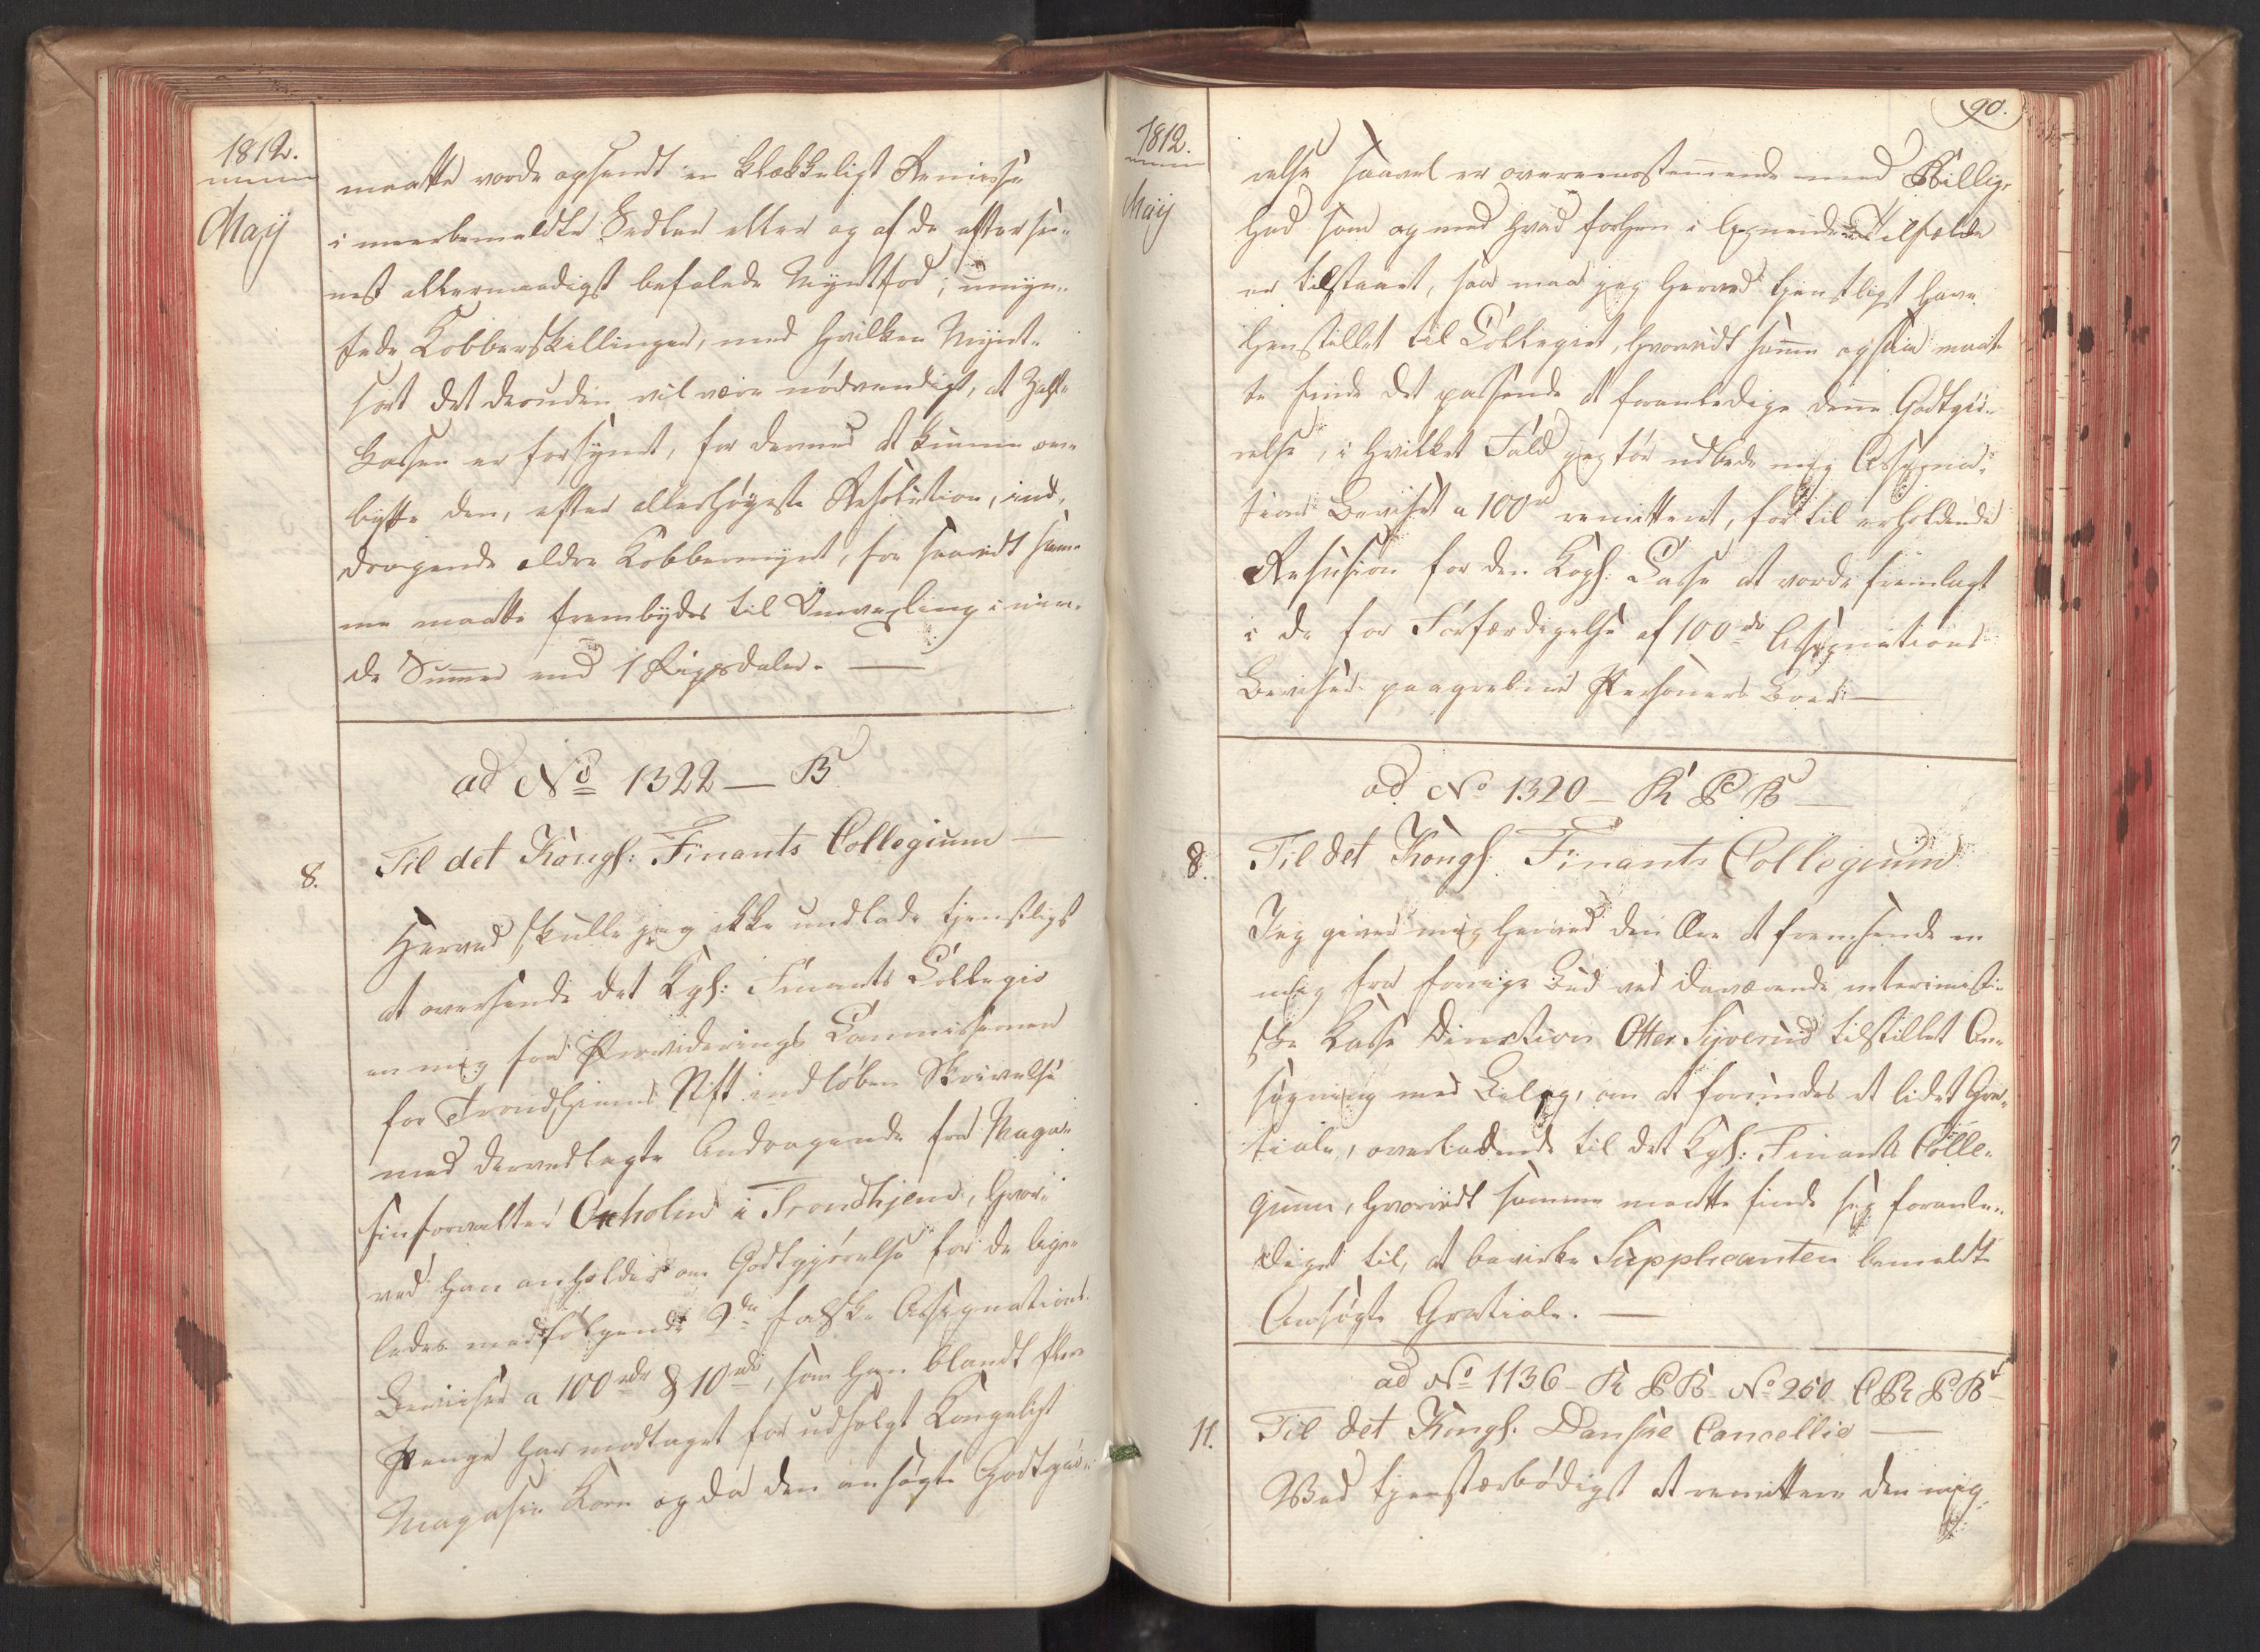 1812.
Maij
maatte vorde opsendt en klækkeligt Remisse
i meerbemeldte Sedler eller og af de efter se-
nest allernaadigst befalede Myntfod, umyn-
tede Kobberskillinger, med hvilken Mynt-
sort det desuden vil være nødvendigt, at Zahl-
Kassen er forsynet, for dermed at kunne om-
bytte den, efter allerhøyeste Resolution, ind-
dragende ældre Kobbermynt, for saavidt sam-
me maatte frembydes til Omvexling i min-
dre Summer end 1 Rigsdaler. —
ad No 1322 — B
8.
Til det Kongl: Finants Collegium —
Herved skulle jeg ikke undlade tienstligst
at oversende det Kgl: Finants Collegio
en mig fra Providerings Commissionen
for Trondhiems Stift indløben Skrivelse
med dervedlagte Andragende fra Maga-
sinforvalter Oxholm i Trondhjem, hvor-
ved han anholder om Godtgjørelse for de lige-
ledes medfølgende 2de falske Assignations
Beviser a 100 rdr & 10 rdr, som han blandt flere
Penge har modtaget for udsolgt Kongeligt
Magasin Korn og da den ansøgte Godtgiø-
90.
1812.
Maij
relse saavel er overeensstemmende med Billig-
hed som og med hvad forhen i lignende Tilfælde
er tilstaaet, saa maa jeg herved tjenstligst have
henstillet til Collegiet, hvorvidt samme ogsaa maat-
te finde det passende at foranledige denne Godtgiø-
relse, i hvilket Fald jeg tør udbede mig Assigna-
tions Beviset a 100 rd remitteret, for til erholdende
Refusion for den Kongl: Casse at vorde fremlagt
i de for Forfærdigelse af 100 rdr Assignations
Beviser paagrebne Personers Boe. —
ad No 1320 — K P B —
8.
Til det Kongl: Finants Collegium
Jeg giver mig herved den Ære at fremsende en
mig fra forrige Bud ved daværende interimisti-
ske Kasse Direction Otter Syverud tilstillet An-
søgning med Bilag, om at forundes et lidet Gra-
tiale, overladende til det Kgl: Finants Colle-
gium, hvorvidt samme maatte finde sig foranle-
diget til, at bevirke Supplicanten bemeldte
Ansøgte Gratiale. —
ad No 1136 — K P B No 260 C R P B
11.
Til det Kongl: Danske Cancellie —
Ved tjenstærbødigst at remittere den mig